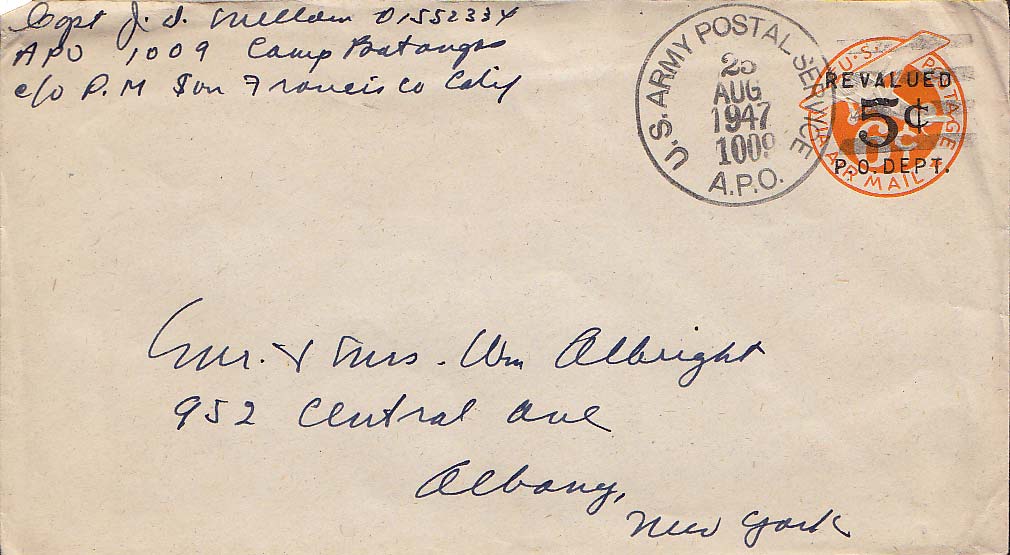 Capt J. S. Mellom 01552334
APO 1009 Camp Batangas
c/o P.M San Francisco Calif
U.S. ARMY POSTAL SERVICE
25
AUG
1947
1009
A.P.O.
U.S. POSTAGE
REVALUED
5¢
6¢
P.O. DEPT.
VIA AIR MAIL
Mr. & Mrs. Wm Albright
952 Central Ave
Albany,
New York